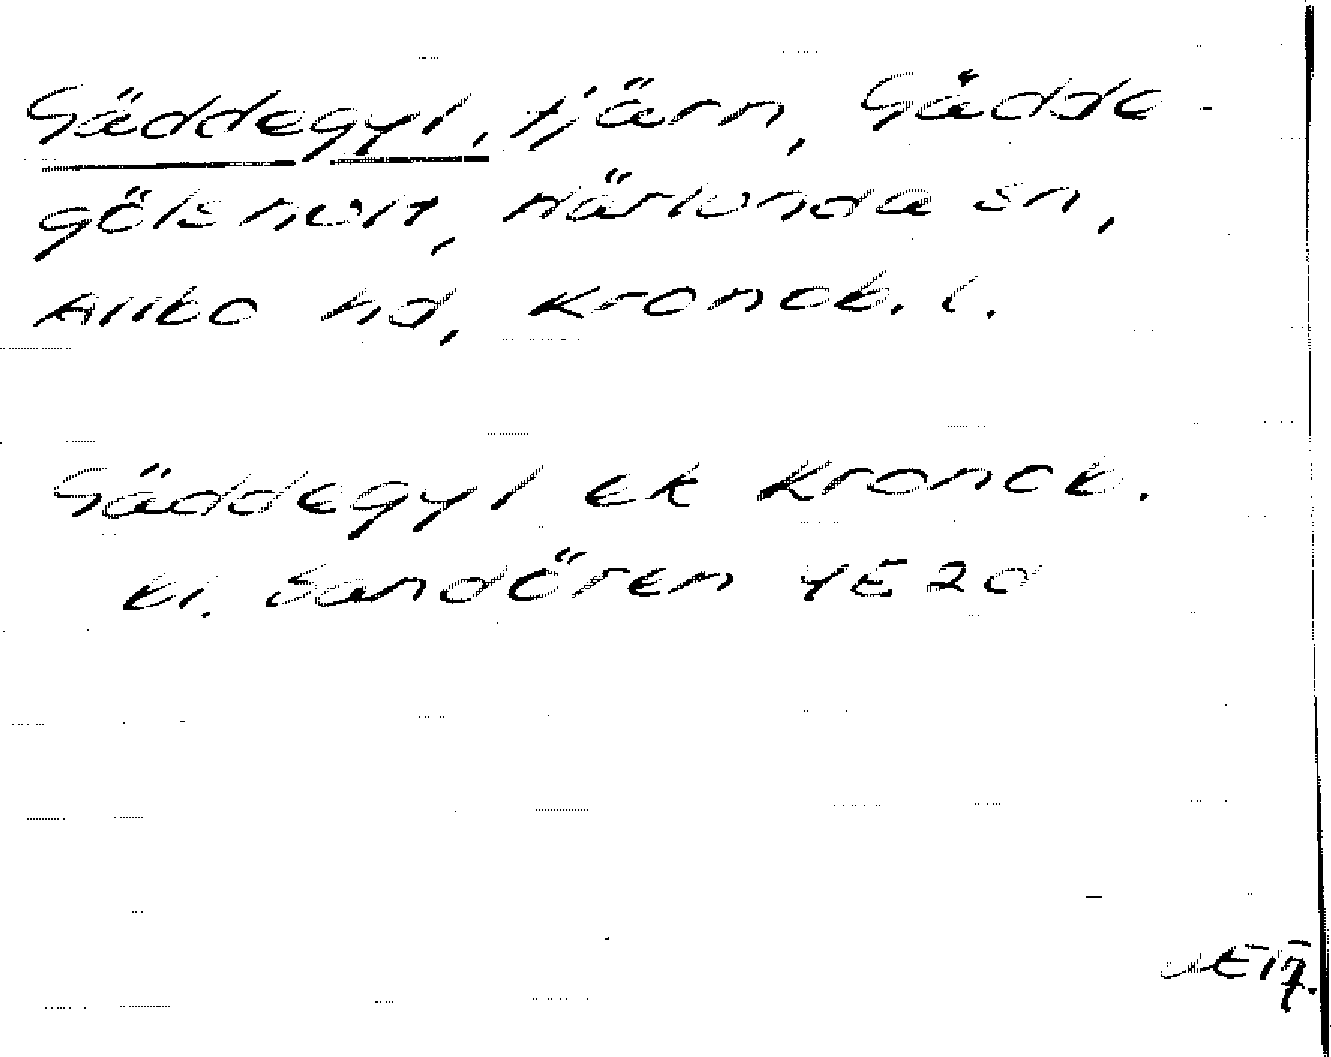 Gäddegyl, tjärn, Gädde-
göls hult, Härlunda sn,
Allbo hd, Kronob. l.
Gäddegyl ek Kronob.
bl. Sandören 4E2d